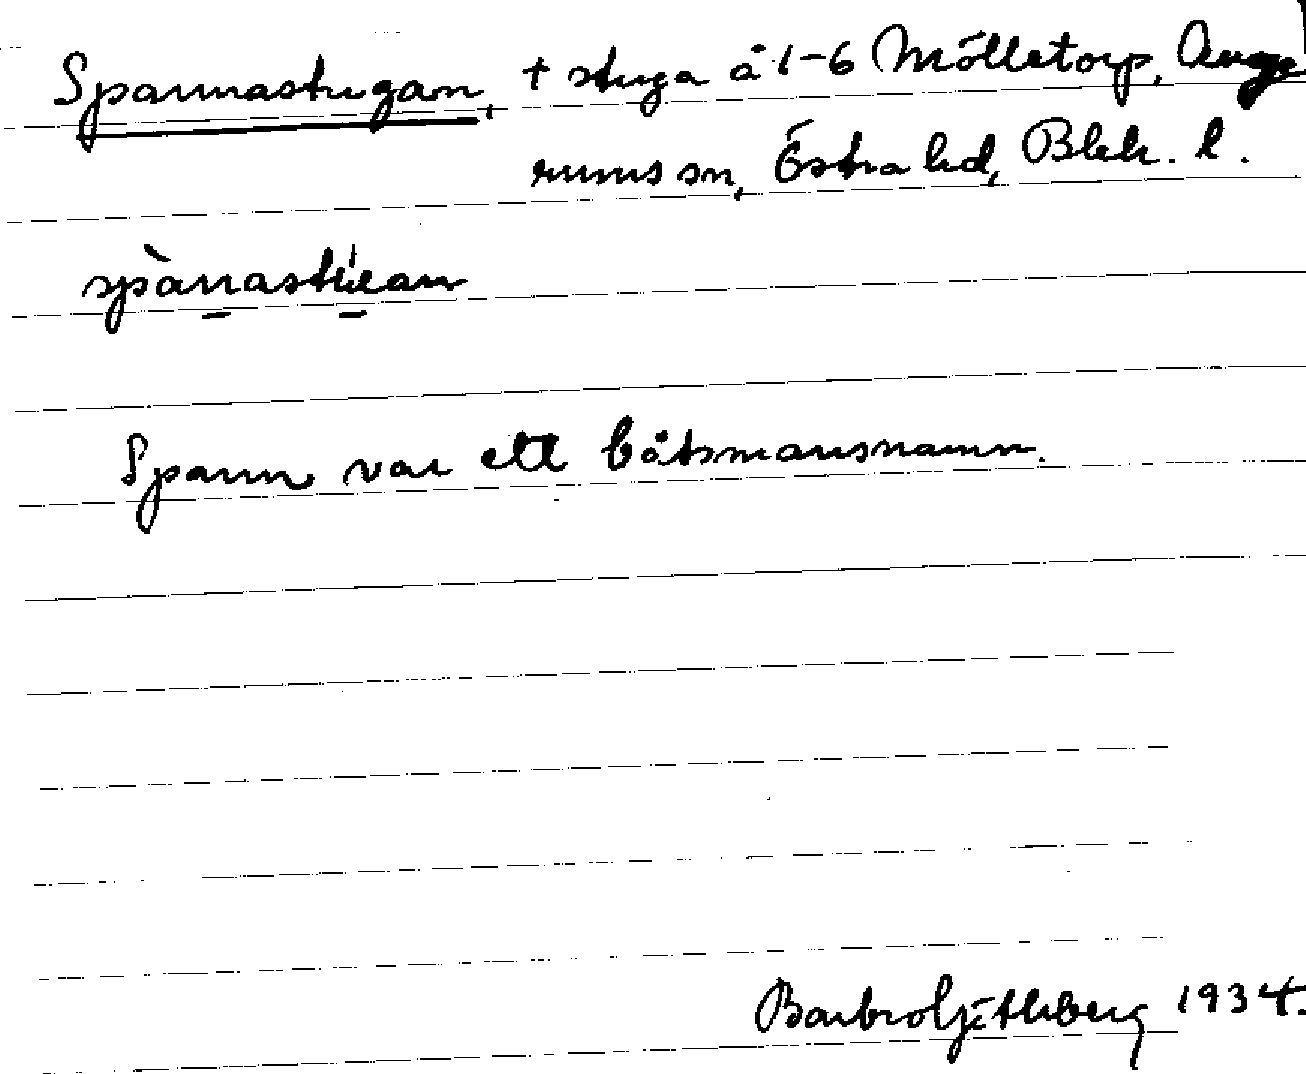 Spannastugan, + stuga å 1-6 Mölletorp, Auge
rums sn, Östra hd, Blek. l.
spànastúan
Spann var ett båtsmansnamn.
Barbro 1934.